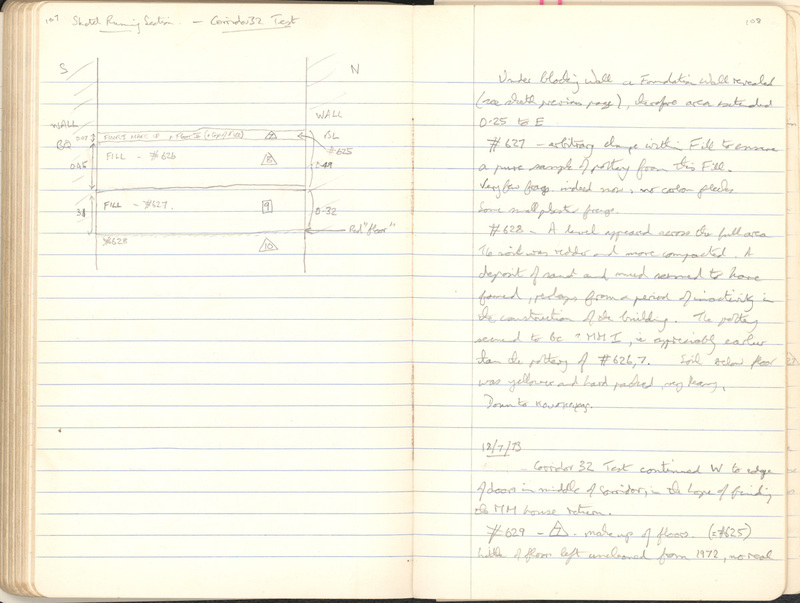 107 Sketch Running Section. - Corridor 32 Test
S
N
WALL
WALL
BL
FLOOR MAKE UP
7
#625
0.45
FILL - #626
8
31
FILL - #627.
9
0.32
Red "floor"
#628
10
108
Under blocking wall a Foundation Wall revealed
(see sketch previous page), therefore area extended
0.25 to E
#627 - arbitrary change within Fill to ensure
a pure sample of pottery from this Fill.
Very few frags indeed now, no carbon flecks
Some small plaster frags.
#628 - A level appeared across the full area
The soil was redder and more compacted. A
deposit of sand and mud seemed to have
formed, perhaps from a period of inactivity in
the construction of the building. The pottery
seemed to be ? MM I, ie appreciably earlier
than the pottery of #626,7. Soil below floor
was yellower and hard packed, very heavy.
Down to
12/7/73
Corridor 32 Test continued W to edge
of doors in middle of corridor, in the hope of finding
the MM house return.
#629 - 7. make up of floors. (=#625)
Little of floor left uncleaned from 1972, no real